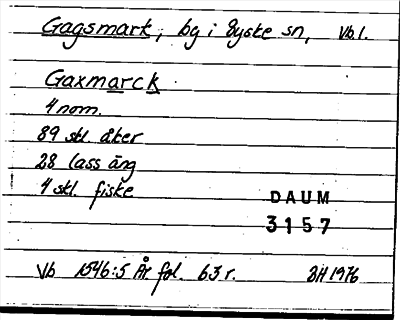 Gagsmark, by i Byske sn, Vb l.
Gaxmarck
4 nom.
89 skl. åker
28 lass äng
4 skl. fiske
DAUM
3157
Vb 1546:5 År fol. 63 r. 1976